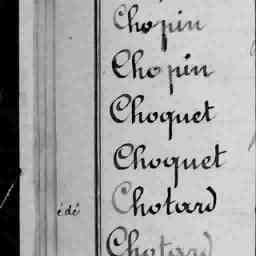 Chopin
Chopin
Choquet
Choquet
édé Chotard
Chotard